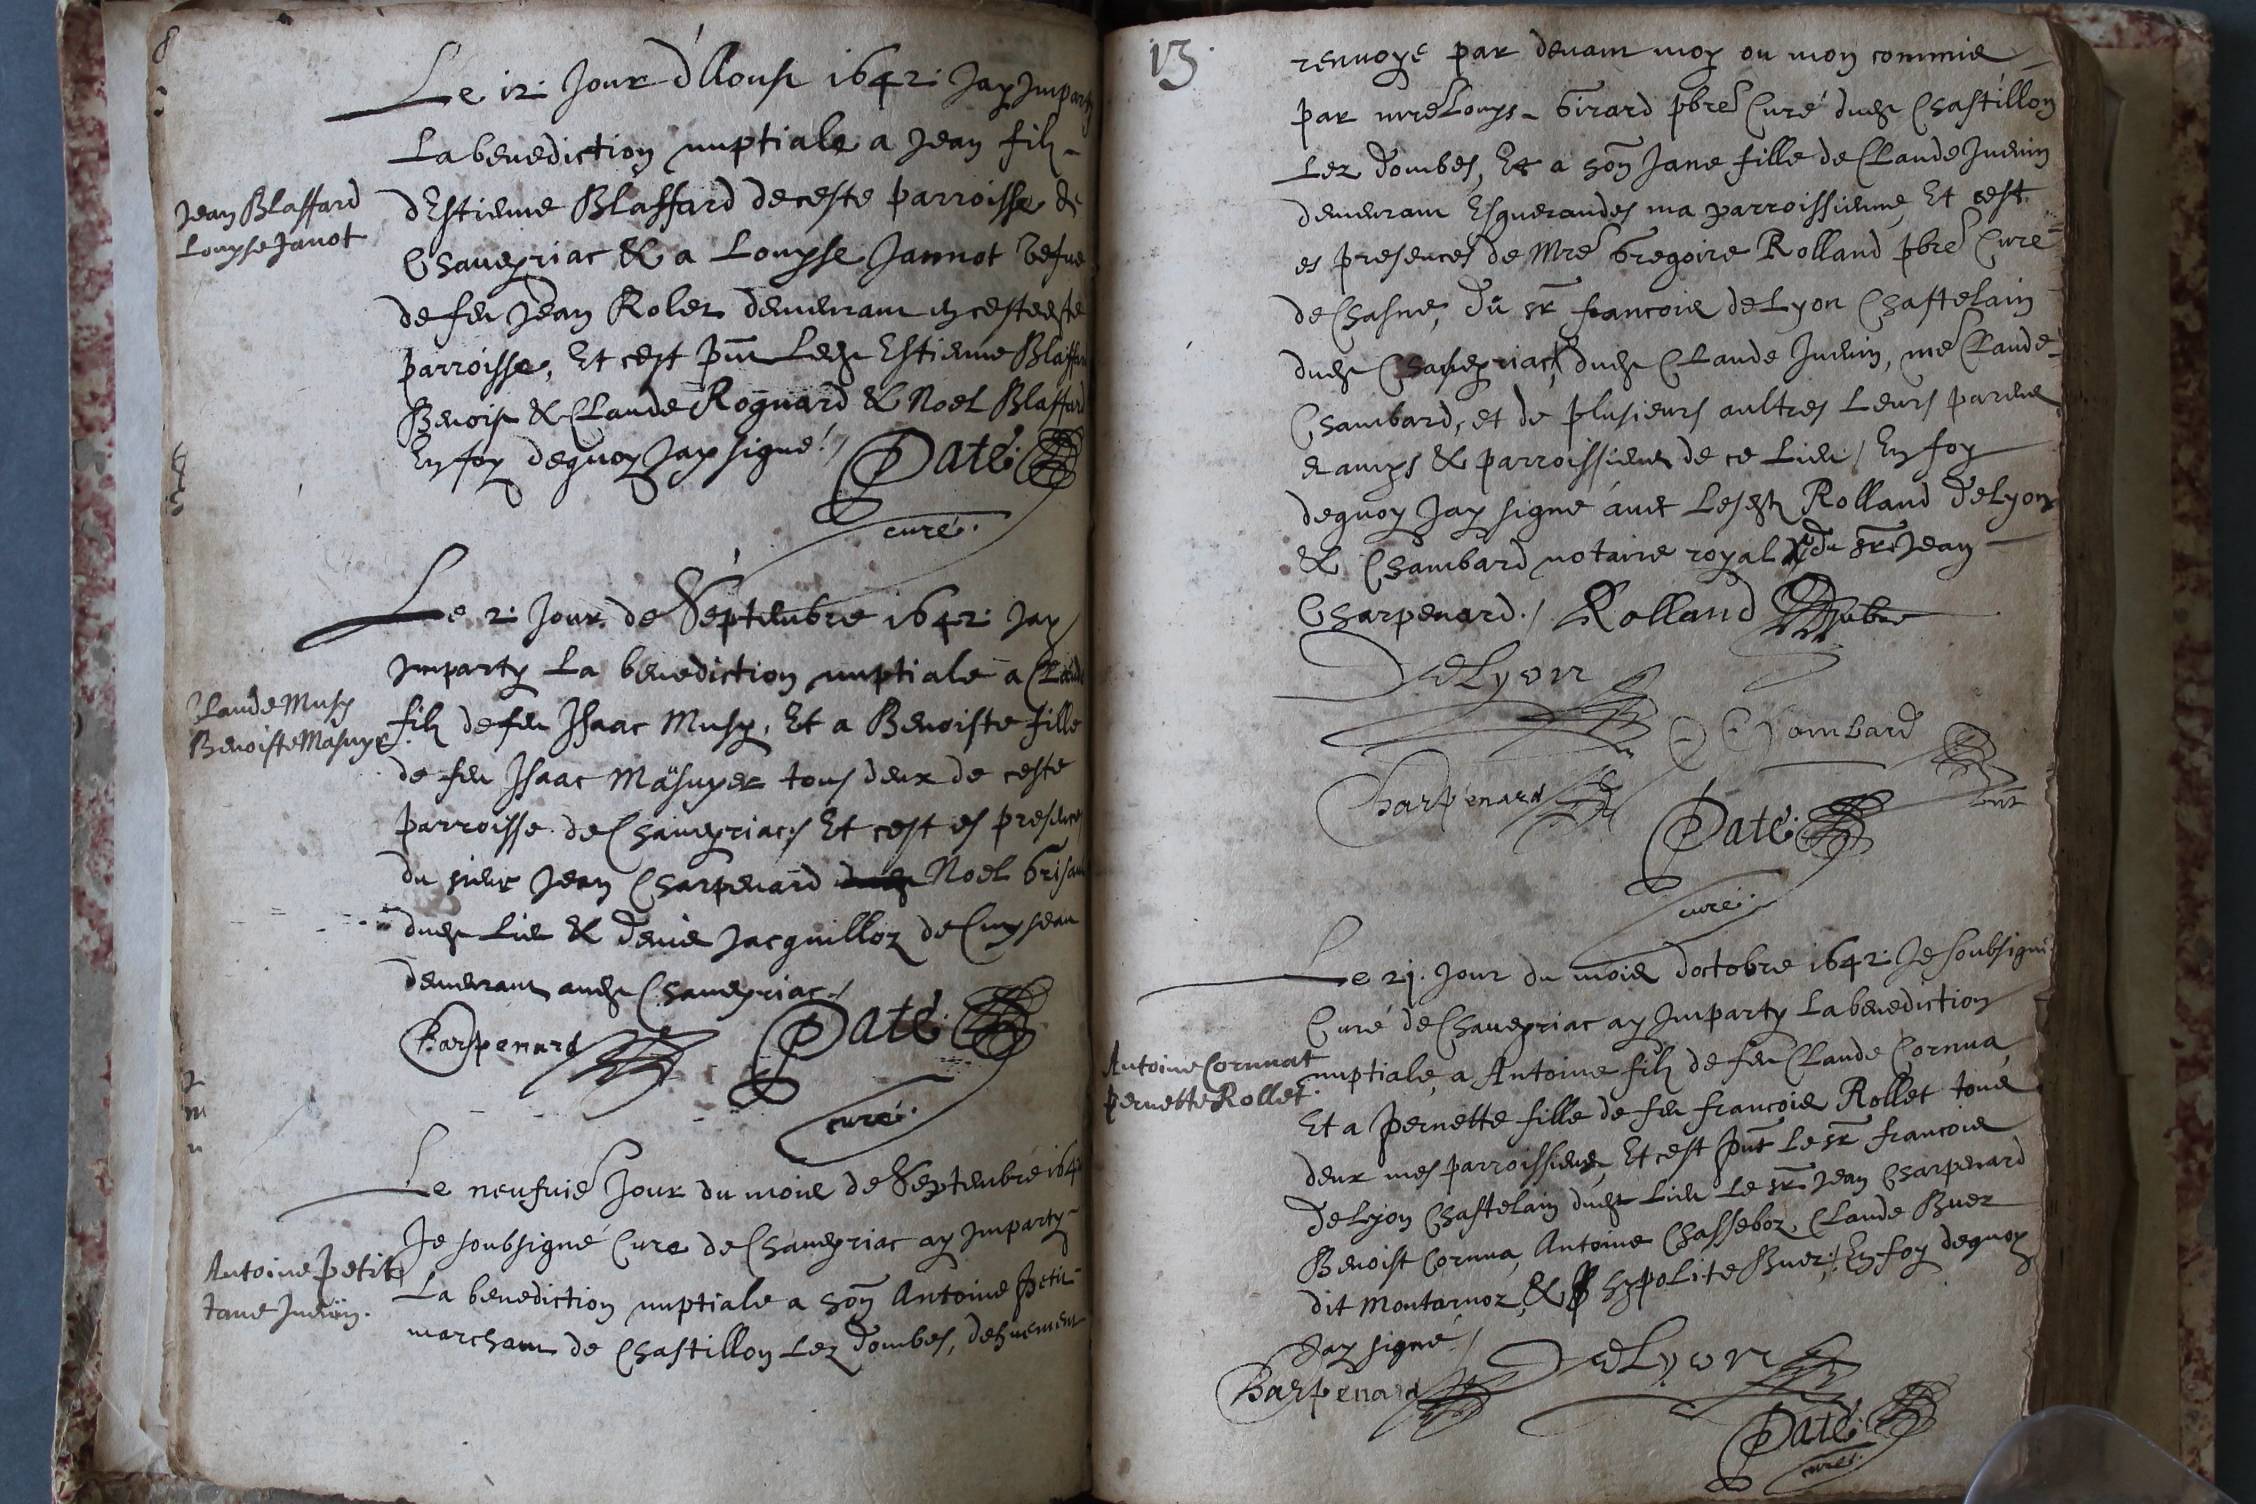 Le 12. Jour d'Aoust 1642. Jay Imparty
La benediction nuptiale a Jean filz
Jean Blaffard
Louyse Janot
d'Estienne Blaffard de ceste parroisse de
Chaveyriac & a Louyse Jannot vefve
de feu Jean Rolet demeurant en ceste
parroisse, Et cest pnt Ledt Estienne Blaffard
Benoist & Claude Rognard & Noel Blaffard
En foy dequoy Jay signé./
Paté
curé.
Le 2. Jour de Septembre 1642. Jay
Imparty La benediction nuptiale a Claude
Claude Musy
Benoiste Masuyer
filz de feu Isaac Musy, Et a Benoiste fille
de feu Isaac Masuyer tous deux de ceste
parroisse de Chaveyriac, Et cest es presences
du sieur Jean Charpenard Noel
dudt Lieu & Denis Jacquilloz de Cuyseau
demeurant audt Chaveyriac./
Charpenard Paté
curé.
Le neufvie Jour du mois de Septembre 1642
Je soubsigné Curé de Chaveyriac ay Imparty
Antoine Petit
Jane Juenin.
La benediction nuptiale a hon Antoine Petit
marchant de Chastillon Lez Dombes, dehuement
13.
renvoyé par devant moy ou mon commis
par mre Louys Girard pbre Curé dudt Chastillon
Lez Dombes, Et a hon Jane fille de Claude Juenin
demeurant Esguerandes ma parroissienne, Et cest
es presences de Mre Gregoire Rolland pbre Curé
de Chasne, du sr francois de Lyon Chastelain
dudt Chaveyriac, dudt Claude Juenin, me Claude
Chambard, et de plusieurs aultres Leurs parens
& amys & parroissiens de ce Lieu / En foy
dequoy Jay signé avec Lesdt Rolland de Lyon
& Chambard notaire royal & du sr Jean
Charpenard./ Rolland
DeLyon
C Chambard
Charpenard
Paté
curé.
Le 21. Jour du mois doctobre 1642. Je soubsigné
Curé de Chaveyriac ay Imparty La benediction
Antoine Cornuat
Pernette Rollet.
nuptiale, a Antoine filz de feu Claude Cornua
Et a Pernette fille de feu francois Rollet tous
deux mes parroissiens, Et cest pnt Le sr francois
de Lyon Chastelain dudt Lieu Le sr Jean Charpenard
Benoist Cornua, Antoine Chasseboz, Claude Buer
dit Montarnoz, & hypolite Buer./ En foy dequoy
Jay signé /
DeLyon
Charpenard
Paté
curé.